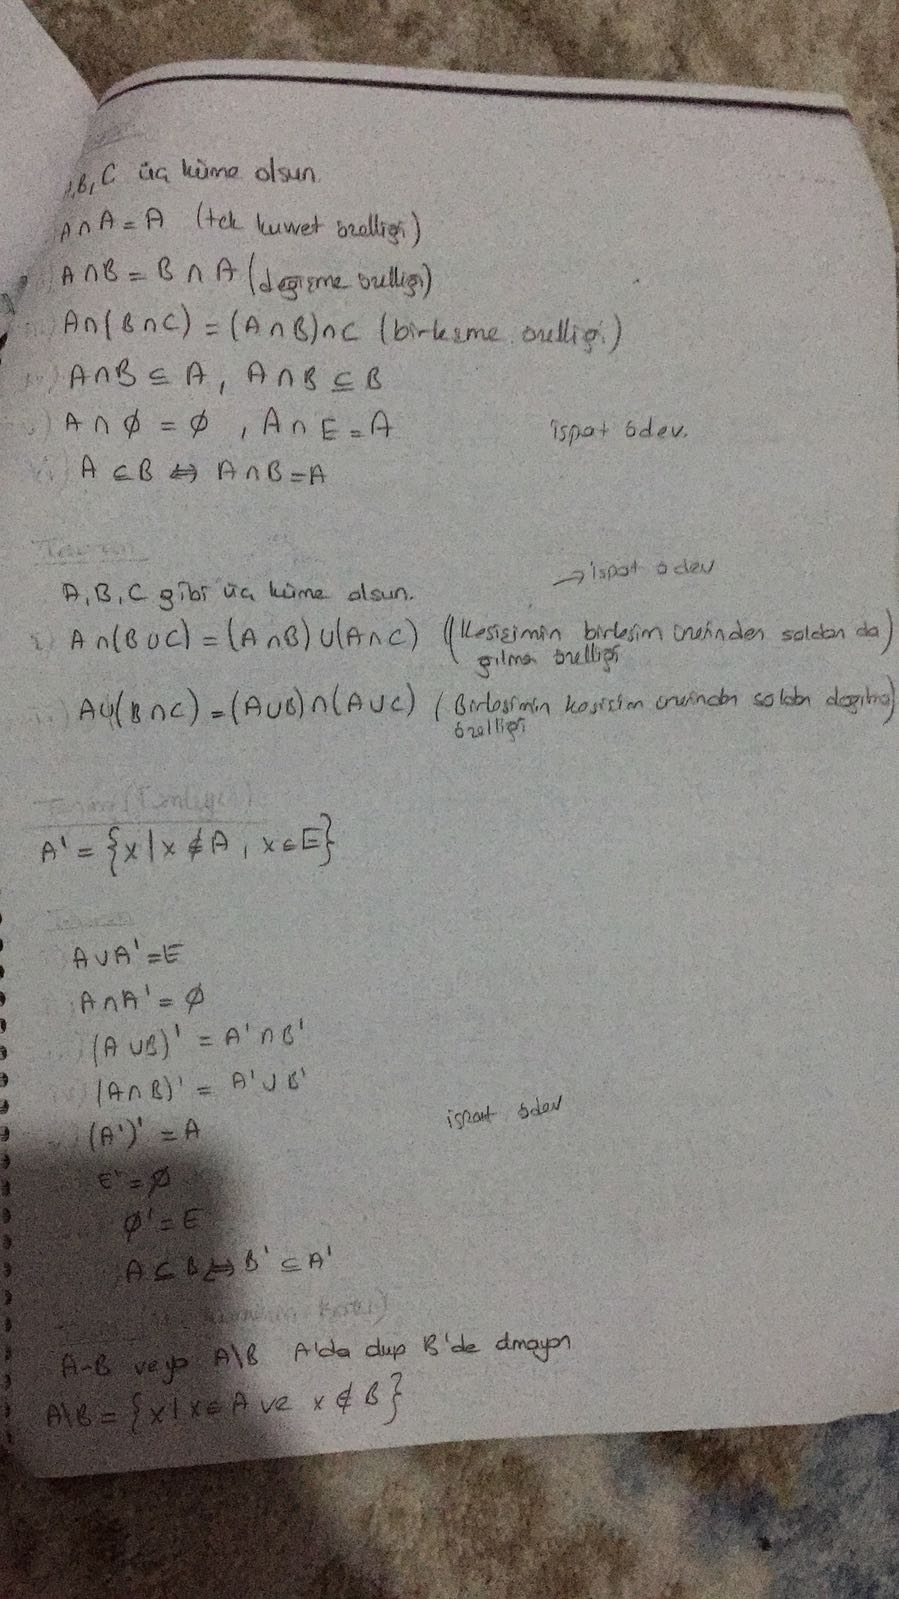 A,B,C üç küme olsun.
A∩A=A (tek kuvvet özelliği)
A∩B=B∩A (değişme özelliği)
A∩(B∩C)=(A∩B)∩C (birleşme özelliği)
A∩B⊆A, A∩B⊆B
A∩∅=∅, A∩E=A ispat ödev.
A⊆B⇔A∩B=A
Teorem
→ispat ödev
A,B,C gibi üç küme olsun.
i) A∩(B∪C)=(A∩B)∪(A∩C) (Kesişimin birleşim üzerinden soldan da
ğılma özelliği)
ii) A∪(B∩C)=(A∪B)∩(A∪C) (Birleşimin kesişim üzerinden soldan dağılma
özelliği)
A'={x|x∉A, x∈E}
Teorem
A∪A'=E
A∩A'=∅
(A∪B)'=A'∩B'
(A∩B)'=A'∪B'
ispat ödev
(A')'=A
E'=∅
∅'=E
A⊆B⇔B'⊆A'
A-B veya A\B A'da olup B'de olmayan
A\B={x|x∈A ve x∉B}